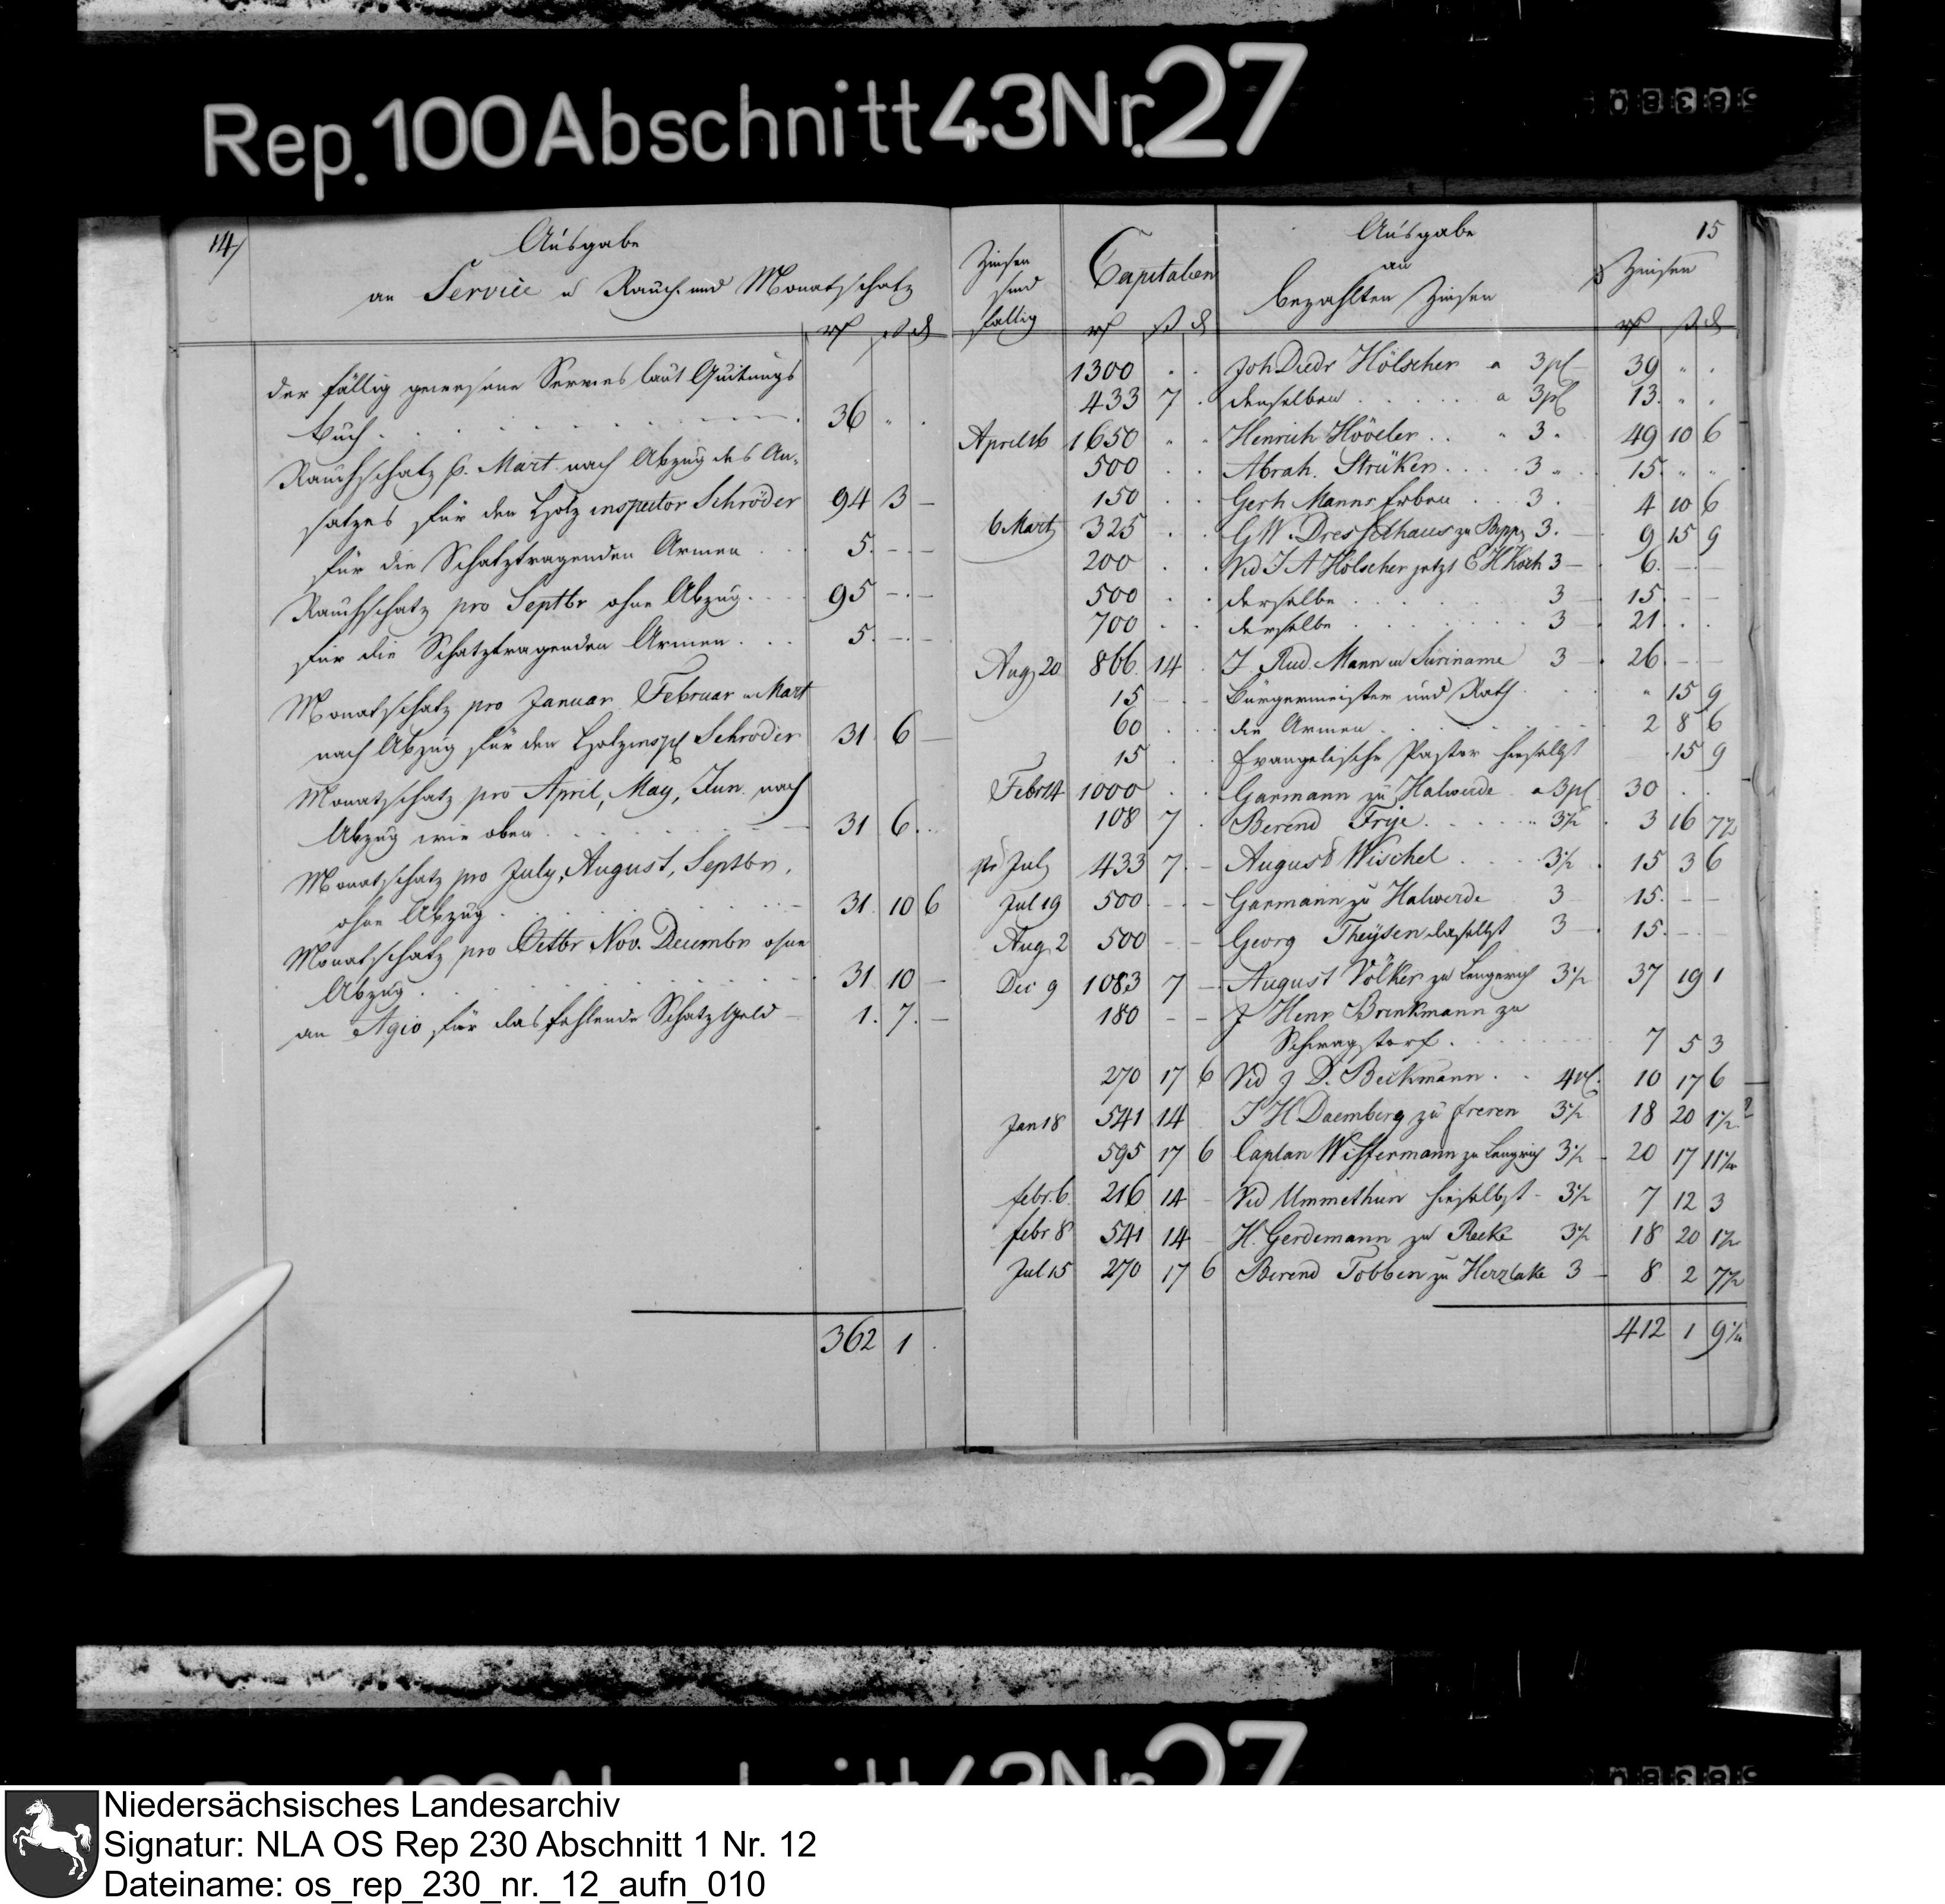 Rep. 100 Abschnitt 43 Nr. 27
14
Ausgabe
an Service u Rauch- und Monatschatz
der fällig gewesene Servies laut Quitungs
buch . . . 36 " .
Rauchschatz p. Mart. nach Abzug des An-
satzes für den Holzinspector Schröder 94 3 –
für die Schatztragenden Armen . . 5. – . –
Rauchschatz pro Septbr ohne Abzug . . 95 – . –
für die Schatztragenden Armen . . . 5. – . –
Monatschatz pro Januar Februar u Mart
nach Abzug für den Holzinsp Schröder 31 6 –
Monatschatz pro April, May, Jun. nach
Abzug wie oben . . . 31 6 . .
Monatschatz pro July, August, Septbr,
ohne Abzug . . . 31 10 6
Monatschatz pro Octbr Nov. Decembr ohne
Abzug . . . 31 10 –
an Agio für das fehlende Schatzgeld – 1. 7. –
362 1 .
15
Zinsen sind fällig
Capitalien
Ausgabe
an
bezahlten Zinsen
Zinsen
1300 . . Joh Diedr Hölscher a 3 pC 39 " .
433 7 . denselben . . . a 3 pC 13. " .
April 16 1650 " " Henrich Höveler . . " 3 " 49 10 6
500 . . Abrah. Strüken . . . 3 " 15. " "
150 . . Gerh Manns Erben . . 3 . 4 10 6
6 Mart 325 . . G W. Dresselhaus zu 3. – 9 15 9
200 . . Wd J A Hölscher jetzt E H Koch 3 – 6. – –
500 . . derselbe . . . 3 – 15. – –
700 . . derselbe . . . 3 – 21 . .
Aug 20 866 14 . J Rud. Mann in Suriname 3 – 26. – –
15 – . – Bürgermeister und Rath . . " 15 9
60 . . die Armen . . . 2 8 6
15 . . Evangelische Pastor hieselbst . 15 9
Febr 14 1000 . . Garmann zu Halverde a 3 pC 30 . .
108 7 . Berend Frije . . . 3½ . 3 16 7½
Jul 433 7. – August Wischel . . . 3½ . 15 3 6
Jul 19 500 – – Garmann zu Halverde 3 15. – –
Aug 2 500 – – Georg Theysen daselbst 3 – 15. – .
Dec 9 1083 7 – August Völker zu Lengerich 3½ 37 19 1
180 – – J Henr Brinkmann zu
Schwagstorf . . . 7 5 3
270 17 6 Wd J D. Beckmann . . 4 pC. 10 17 6
Jan 18 541 14 J H Daemberg zu Freren 3½ 18 20 1½
595 17 6 Caplan Wissermann zu Lengrich 3½ – 20 17 11½
febr. 6 216 14 – Wd Ummethun hieselbst – 3½ 7 12 3
febr 8 541 14 – H. Gerdemann zu Recke 3½ 18 20 1½
Jul 15 270 17 6 Berend Tobben zu Herzlake 3 – 8 2 7½
412 1 9½
Niedersächsisches Landesarchiv
Signatur: NLA OS Rep 230 Abschnitt 1 Nr. 12
Dateiname: os_rep_230_nr._12_aufn_010